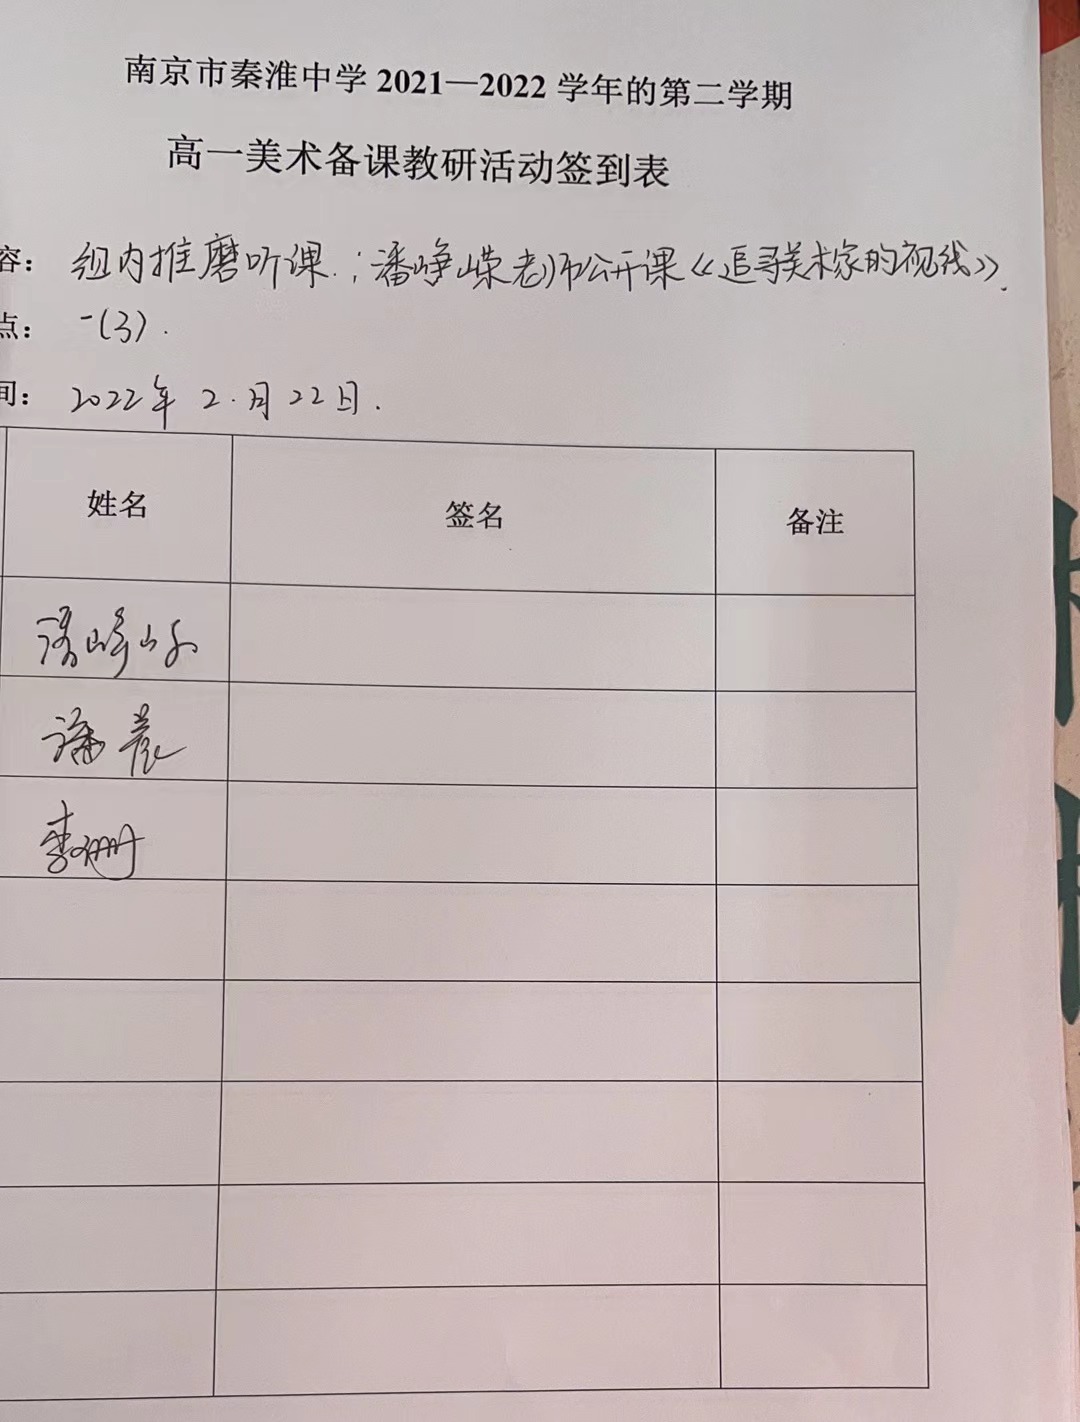 南京市秦淮中学2021—2022学年的第二学期
高一美术备课教研活动签到表
容： 组内推磨听课；潘峥嵘老师公开课《追寻美术家的视线》.
点： 一(3).
间： 2022年2.月22日.
姓名 签名 备注
潘峥嵘
潘晨
李珊